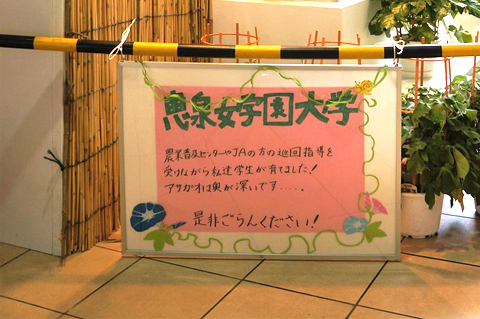 恵泉女学園大学
農業普及センターやJAの方の巡回指導を
受けながら私達学生が育てました!
アサガオは奥が深いです.....
是非ごらんください!